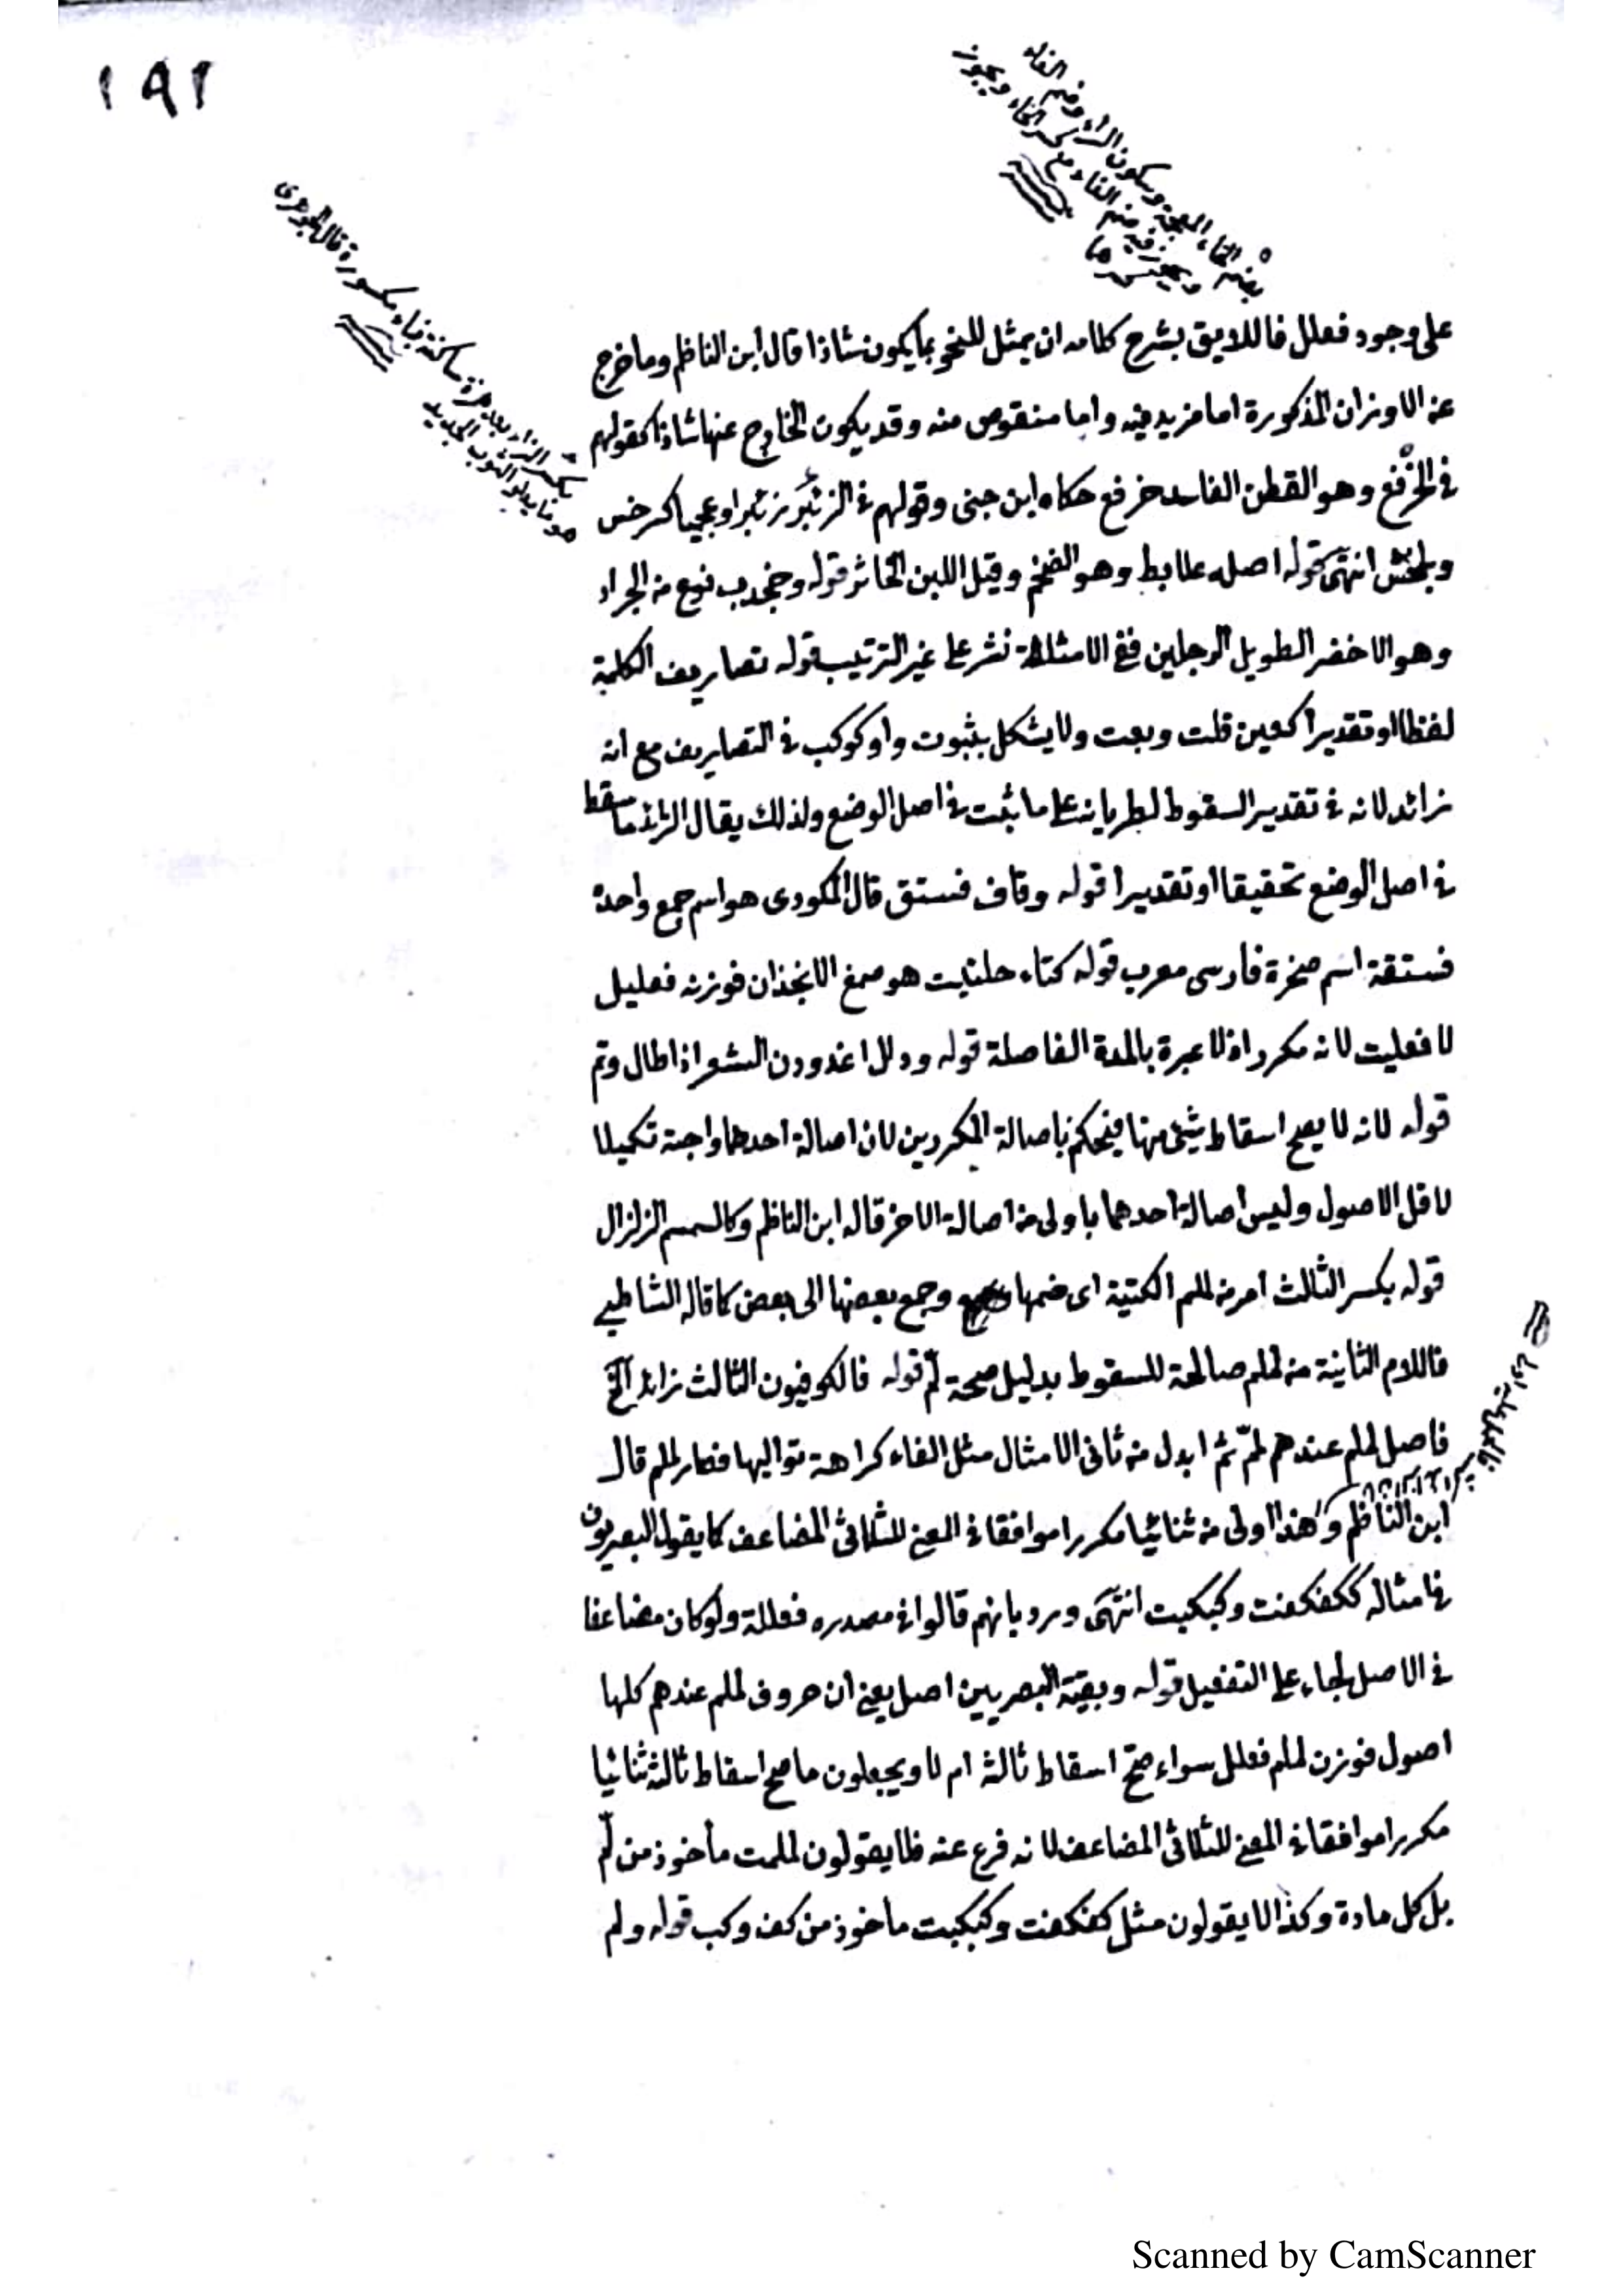 ١٩١
بضم الخاء المعجمة وسكون الراء وضم الفاء
بكسر الزاء بعد همزة ساكنة فباء مكسورة قال الجوهري
هو ما يعلو الثوب الجديد
على وجود فعلل فاللايق بشرح كلامه ان يمثل للنحو بما يكون شاذا قال ابن الناظم وما خرج
عن الاوزان المذكورة اما مزيد فيه واما منقوص منه وقد يكون الخارج عنها شاذا كقولهم
في الخرفع وهو القطن الفاسد خرفع حكاه ابن جني وقولهم في الزئبر زئبر او عجميا كرخس
وبلخش انتهى قوله اصله علابط وهو الضخم وقيل اللبن الخاثر قوله وجخدب نوع من الجراد
وهو الاخضر الطويل الرجلين ففي الامثلة نشر على غير الترتيب قوله تصاريف الكلمة
لفظا او تقديرا كعين قلت وبعت ولا يشكل بثبوت واو كوكب في التصاريف مع انه
زائد لانه في تقدير السقوط لطريانه على ما ثبت في اصل الوضع ولذلك يقال الزائد ما سقط
في اصل الوضع تحقيقا او تقديرا قوله وقاف فستق قال المكودي هو اسم جمع واحده
فستقة اسم صخرة فارسي معرب قوله كتاء حلتيت هو صمغ الانجذان فوزنه فعليل
لا فعليت لانه مكرر اذ لا عبرة بالمدة الفاصلة قوله ودلل اغدودن الشعر اذا طال وتم
قوله لانه لا يصح اسقاط شئ منها فيحكم باصالة المكررين لان اصالة احدهما واجبة تكميلا
لاقل الاصول وليس اصالة احدهما باولى من اصالة الاخر قاله ابن الناظم وكالسمسم الزلزال
قوله بكسر الثالث امر من لملم الكتيبة اى ضمها وجمع بعضها الى بعض كما قاله الشاطبي
فاللام الثانية من لملم صالحة للسقوط بدليل صحة لمّ قوله فالكوفيون الثالث زائد الخ
فاصل لملم عندهم لمّم ثم ابدل من ثاني الامثال مثل الفاء كراهة تواليها فصار لملم قال
ابن الناظم وهذا اولى من ثنائيا مكررا موافقا في المعنى للثلاثي المضاعف كما يقول البصريون
في امثاله ككفكفت وكبكبت انتهى ورد بانهم قالوا في مصدره فعللة ولو كان مضاعفا
في الاصل لجاء على التفعيل قوله وبقية البصريين اصل يعني ان حروف لملم عندهم كلها
اصول فوزن لملم فعلل سواء صح اسقاط ثالثه ام لا ويجعلون ما صح اسقاط ثالثه ثنائيا
مكررا موافقا في المعنى للثلاثي المضاعف لا نه فرع عنه فلا يقولون لملمت مأخوذ من لمّ
بل كل مادة وكذا لا يقولون مثل كفكفت وكبكبت مأخوذ من كف وكب قوله ولم
Scanned by CamScanner